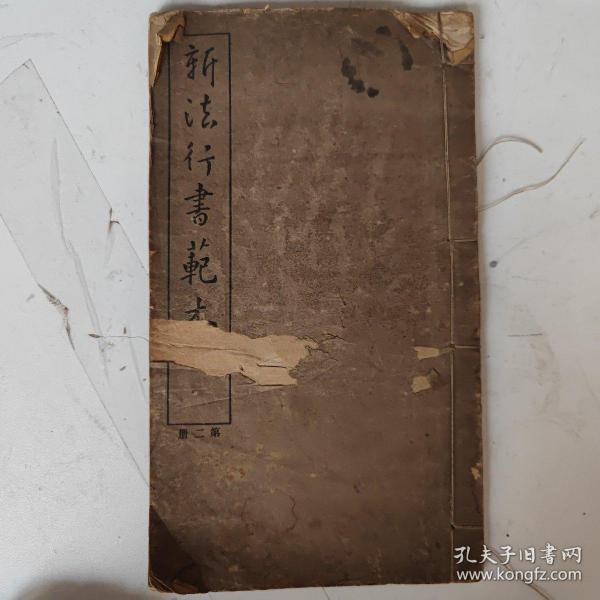 新法行書範本
第二册
孔夫子旧書网
www.kongfz.com